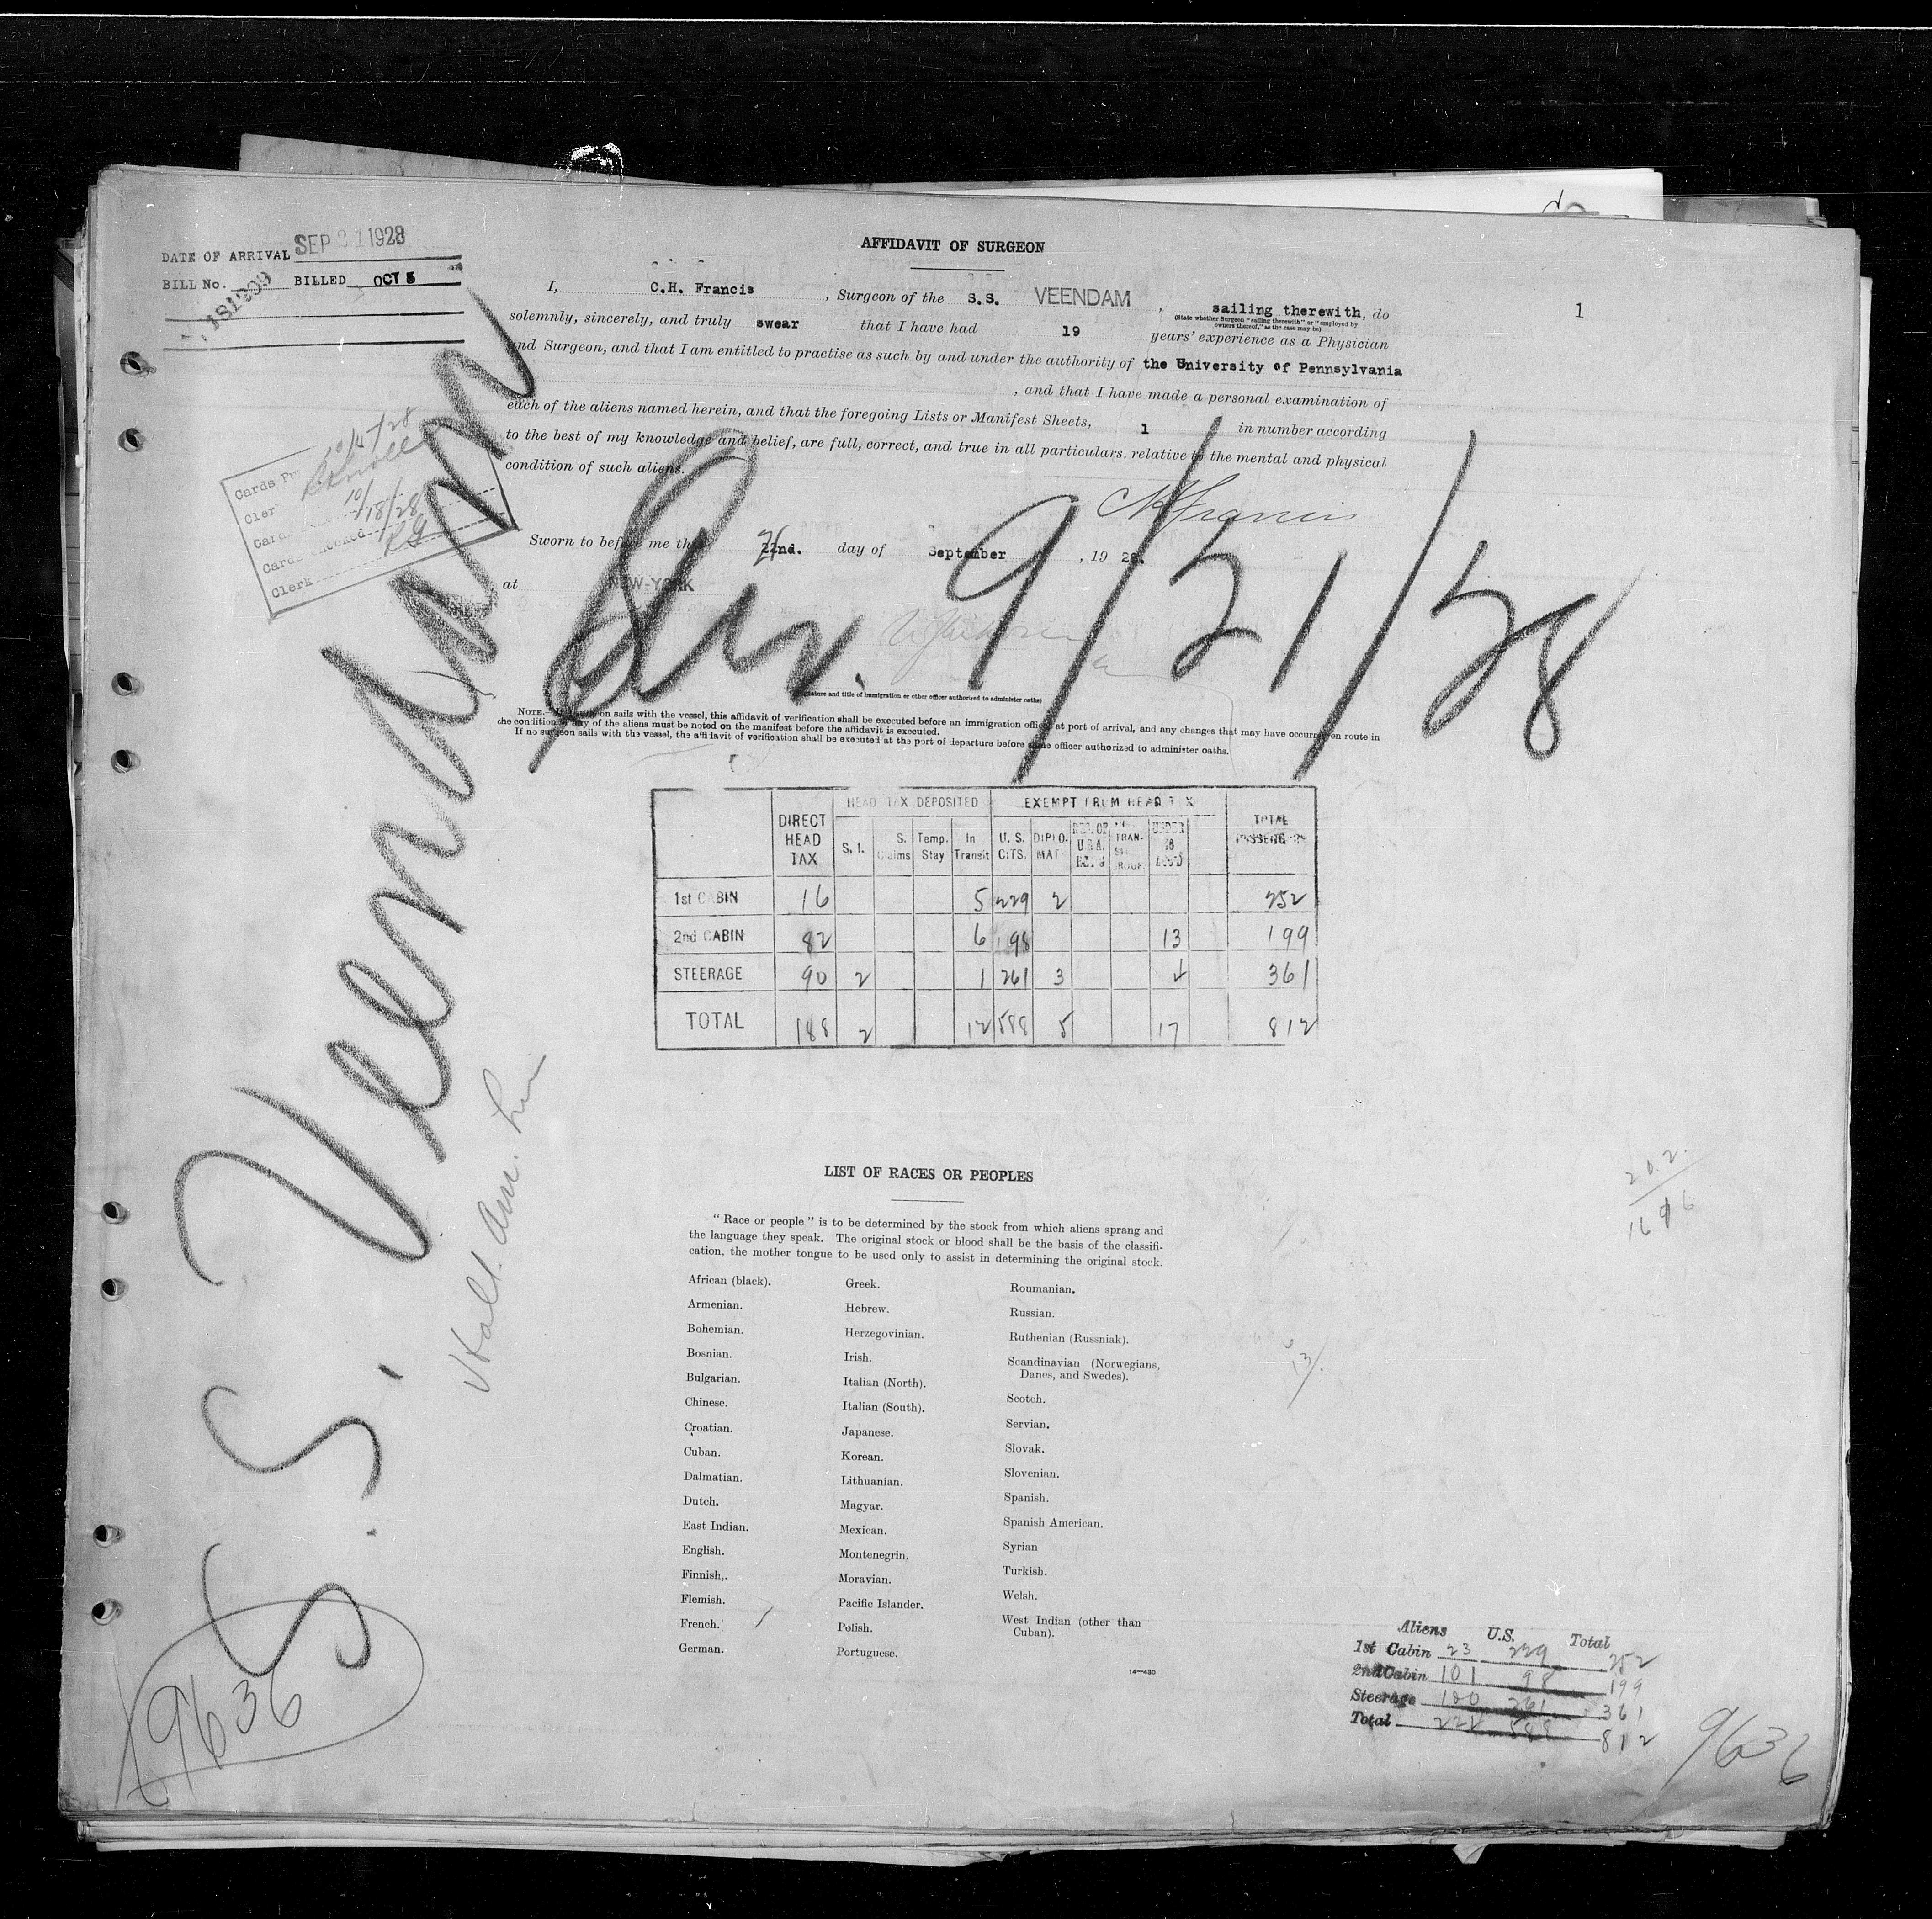 DATE OF ARRIVAL SEP 21 1928
BILL No. 181209 BILLED OCT 5
AFFIDAVIT OF SURGEON
1
I, C.H. Francis, Surgeon of the S.S. VEENDAM, sailing therewith, do
(State whether Surgeon "sailing therewith" or "employed by
owners thereof," as the case may be)
solemnly, sincerely, and truly swear that I have had 19 years' experience as a Physician
and Surgeon, and that I am entitled to practise as such by and under the authority of the University of Pennsylvania
, and that I have made a personal examination of
each of the aliens named herein, and that the foregoing Lists or Manifest Sheets, 1 in number according
to the best of my knowledge and belief, are full, correct, and true in all particulars, relative to the mental and physical
condition of such aliens.
CH Francis
Sworn to before me this 22nd. day of September, 19 28.
at NEW-YORK
10/4/28
Clerk
10/18/28
Clerk RG
S.S. Veendam
Arr. 9/21/28
Holl. Am. Lin
(Signature and title of immigration or other officer authorized to administer oaths)
NOTE.—If a surgeon sails with the vessel, this affidavit of verification shall be executed before an immigration officer at port of arrival, and any changes that may have occurred en route in
the condition of any of the aliens must be noted on the manifest before the affidavit is executed.
If no surgeon sails with the vessel, the affidavit of verification shall be executed at the port of departure before some officer authorized to administer oaths.
HEAD TAX DEPOSITED EXEMPT FROM HEAD TAX
DIRECT HEAD TAX S. I. S. Claims Temp. Stay In Transit U. S. CITS. DIPLO- MAT UNDER 16 TOTAL PASSENGERS
1st CABIN 16 5 229 2 252
2nd CABIN 82 6 98 13 199
STEERAGE 90 2 1 261 3 4 361
TOTAL 188 2 12 588 5 17 812
202
LIST OF RACES OR PEOPLES
"Race or people" is to be determined by the stock from which aliens sprang and
the language they speak. The original stock or blood shall be the basis of the classifi-
cation, the mother tongue to be used only to assist in determining the original stock.
African (black).
Armenian.
Bohemian.
Bosnian.
Bulgarian.
Chinese.
Croatian.
Cuban.
Dalmatian.
Dutch.
East Indian.
English.
Finnish.
Flemish.
French.
German.
Greek.
Hebrew.
Herzegovinian.
Irish.
Italian (North).
Italian (South).
Japanese.
Korean.
Lithuanian.
Magyar.
Mexican.
Montenegrin.
Moravian.
Pacific Islander.
Polish.
Portuguese.
Roumanian.
Russian.
Ruthenian (Russniak).
Scandinavian (Norwegians,
Danes, and Swedes).
Scotch.
Servian.
Slovak.
Slovenian.
Spanish.
Spanish American.
Syrian
Turkish.
Welsh.
West Indian (other than
Cuban).
14—430
Aliens U.S. Total
1st Cabin 23 229 252
2nd Cabin 101 98 199
Steerage 100 261 361
Total 224 588 812
9636
9636